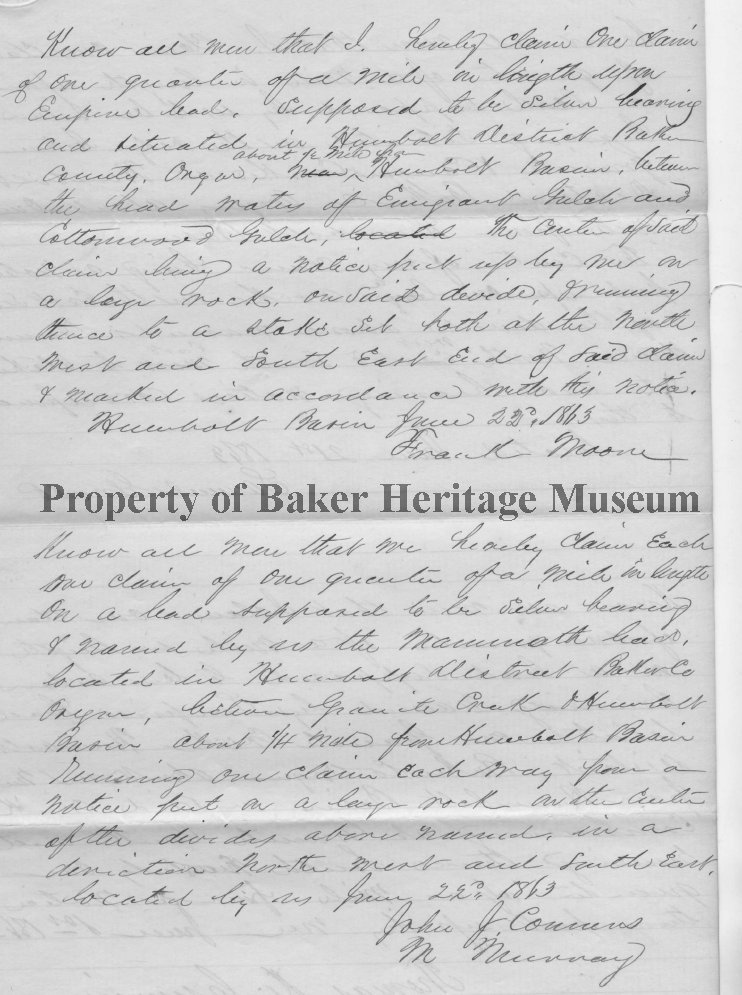 Know all men that I. hereby claim One claim
of one quarter of a mile in length upon
Empire lead. Supposed to be Silver bearing
and situated in Humbolt District Baker
about ½ Mile from
County. Oregon, Near Humbolt Basin, between
the head waters of Emigrant Gulch and
Cottonwood Gulch, located The Center of Said
claim being a notice put up by me on
a large rock. on Said devide, & running
thence to a stake Set both at the North
West and South East End of Said claim
& marked in accordance with this notice.
Humbolt Basin June 22d, 1863
Frank Moore
Property of Baker Heritage Museum
Know all Men that we hereby claim Each
one claim of one quarter of a Mile in length
On a lead supposed to be Silver bearing
& named by us the Mammoth lead.
located in Humbolt District Baker Co
Oregon, between Granite Creek & Humbolt
Basin about 1/4 from Humbolt Basin
Running one claim Each way from a
Notice put on a large rock on the Center
of the divide above named. in a
North West and South East.
located by us June 22d, 1863
John J. Conners
M Murray